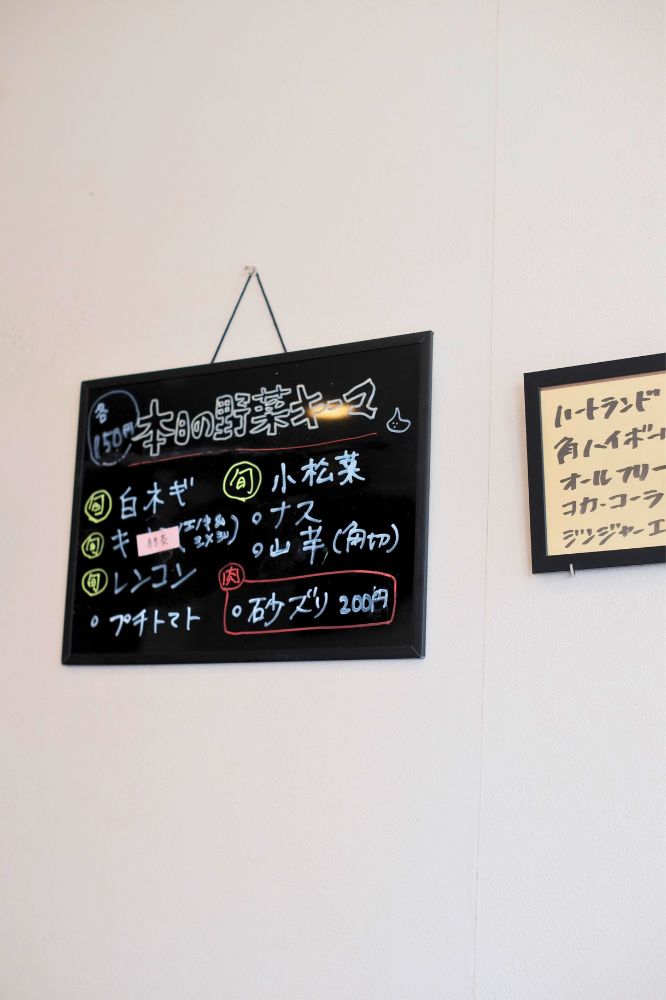 各
150円
本日の野菜キーマ
旬 白ネギ
旬
旬 レンコン
プチトマト
旬 小松菜
ナス
山芋(角切)
肉
砂ズリ 200円
ハートランド
角ハイボー
オールフリー
コカ・コーラ
ジンジャーエ